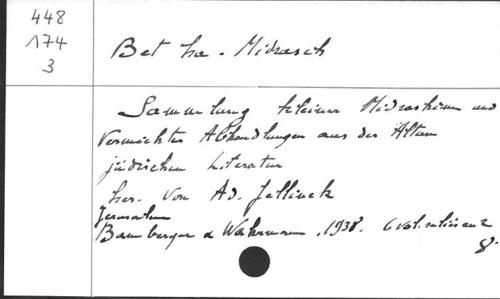 448
174
3
Bet ha-Midrasch
Sammlung kleiner Midraschim und
Vermischter Abhandlungen aus der Alten
jüdischen Literatur
her. von Ad. Jellinek
Jerusalem
Bamberger & Wahrmann, 1938. 6 vol. 2
8°